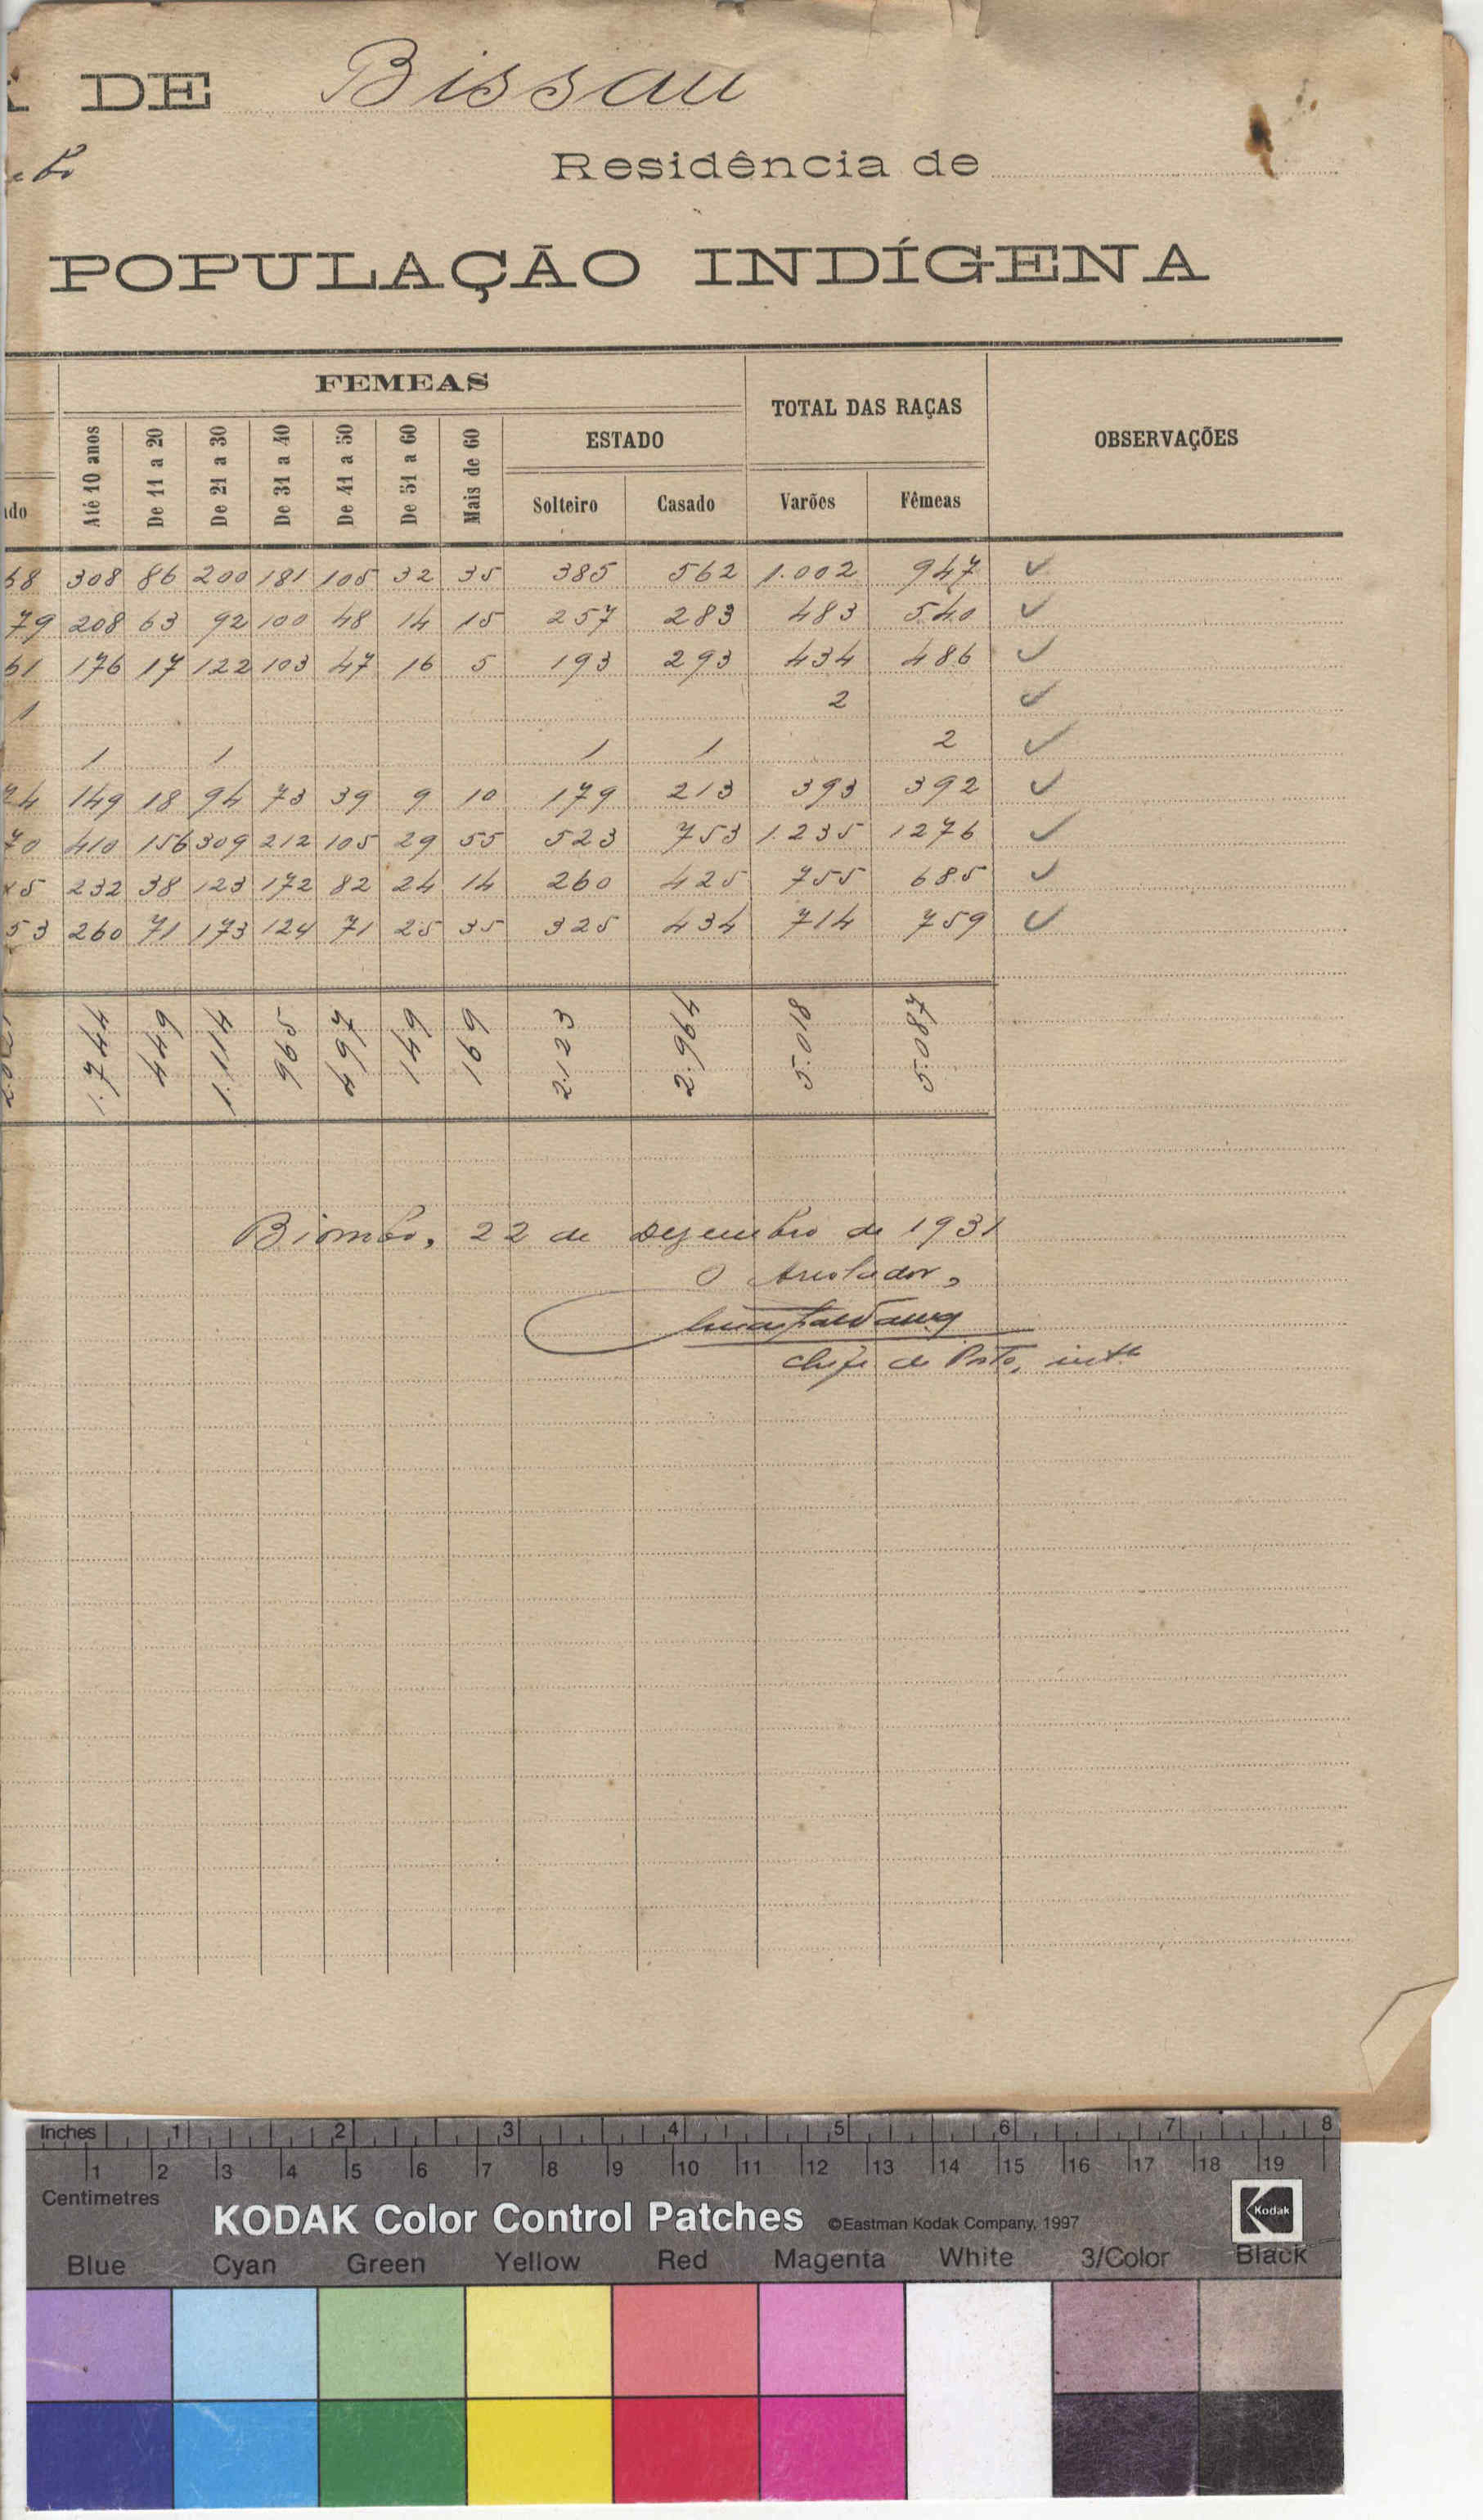 DE Bissau
Residência de
POPULAÇÃO INDÍGENA
FEMEAS
TOTAL DAS RAÇAS
OBSERVAÇÕES
Até 10 anos De 11 a 20 De 21 a 30 De 31 a 40 De 41 a 50 De 51 a 60 Mais de 60 ESTADO
Solteiro Casado Varões Fêmeas
68 308 86 200 181 105 32 35 385 562 1.002 947 ✓
79 208 63 92 100 48 14 15 257 283 483 540 ✓
61 176 17 122 103 47 16 5 193 293 434 486 ✓
1 2 ✓
1 1 1 1 2 ✓
74 149 18 94 73 39 9 10 179 213 393 392 ✓
70 410 156 309 212 105 29 55 523 753 1.235 1276 ✓
232 38 123 172 82 24 14 260 425 755 685 ✓
53 260 71 173 124 71 25 35 325 434 714 759 ✓
1.744 449 1.114 965 497 149 169 2.123 2.964 5.018 5.087
Biombo, 22 de Dezembro de 1931
O Arrolador,
Chefe de Posto, intº
Inches 1 2 3 4 5 6 7 8
1 2 3 4 5 6 7 8 9 10 11 12 13 14 15 16 17 18 19
Centimetres
KODAK Color Control Patches ©Eastman Kodak Company, 1997 Kodak
Blue Cyan Green Yellow Red Magenta White 3/Color Black